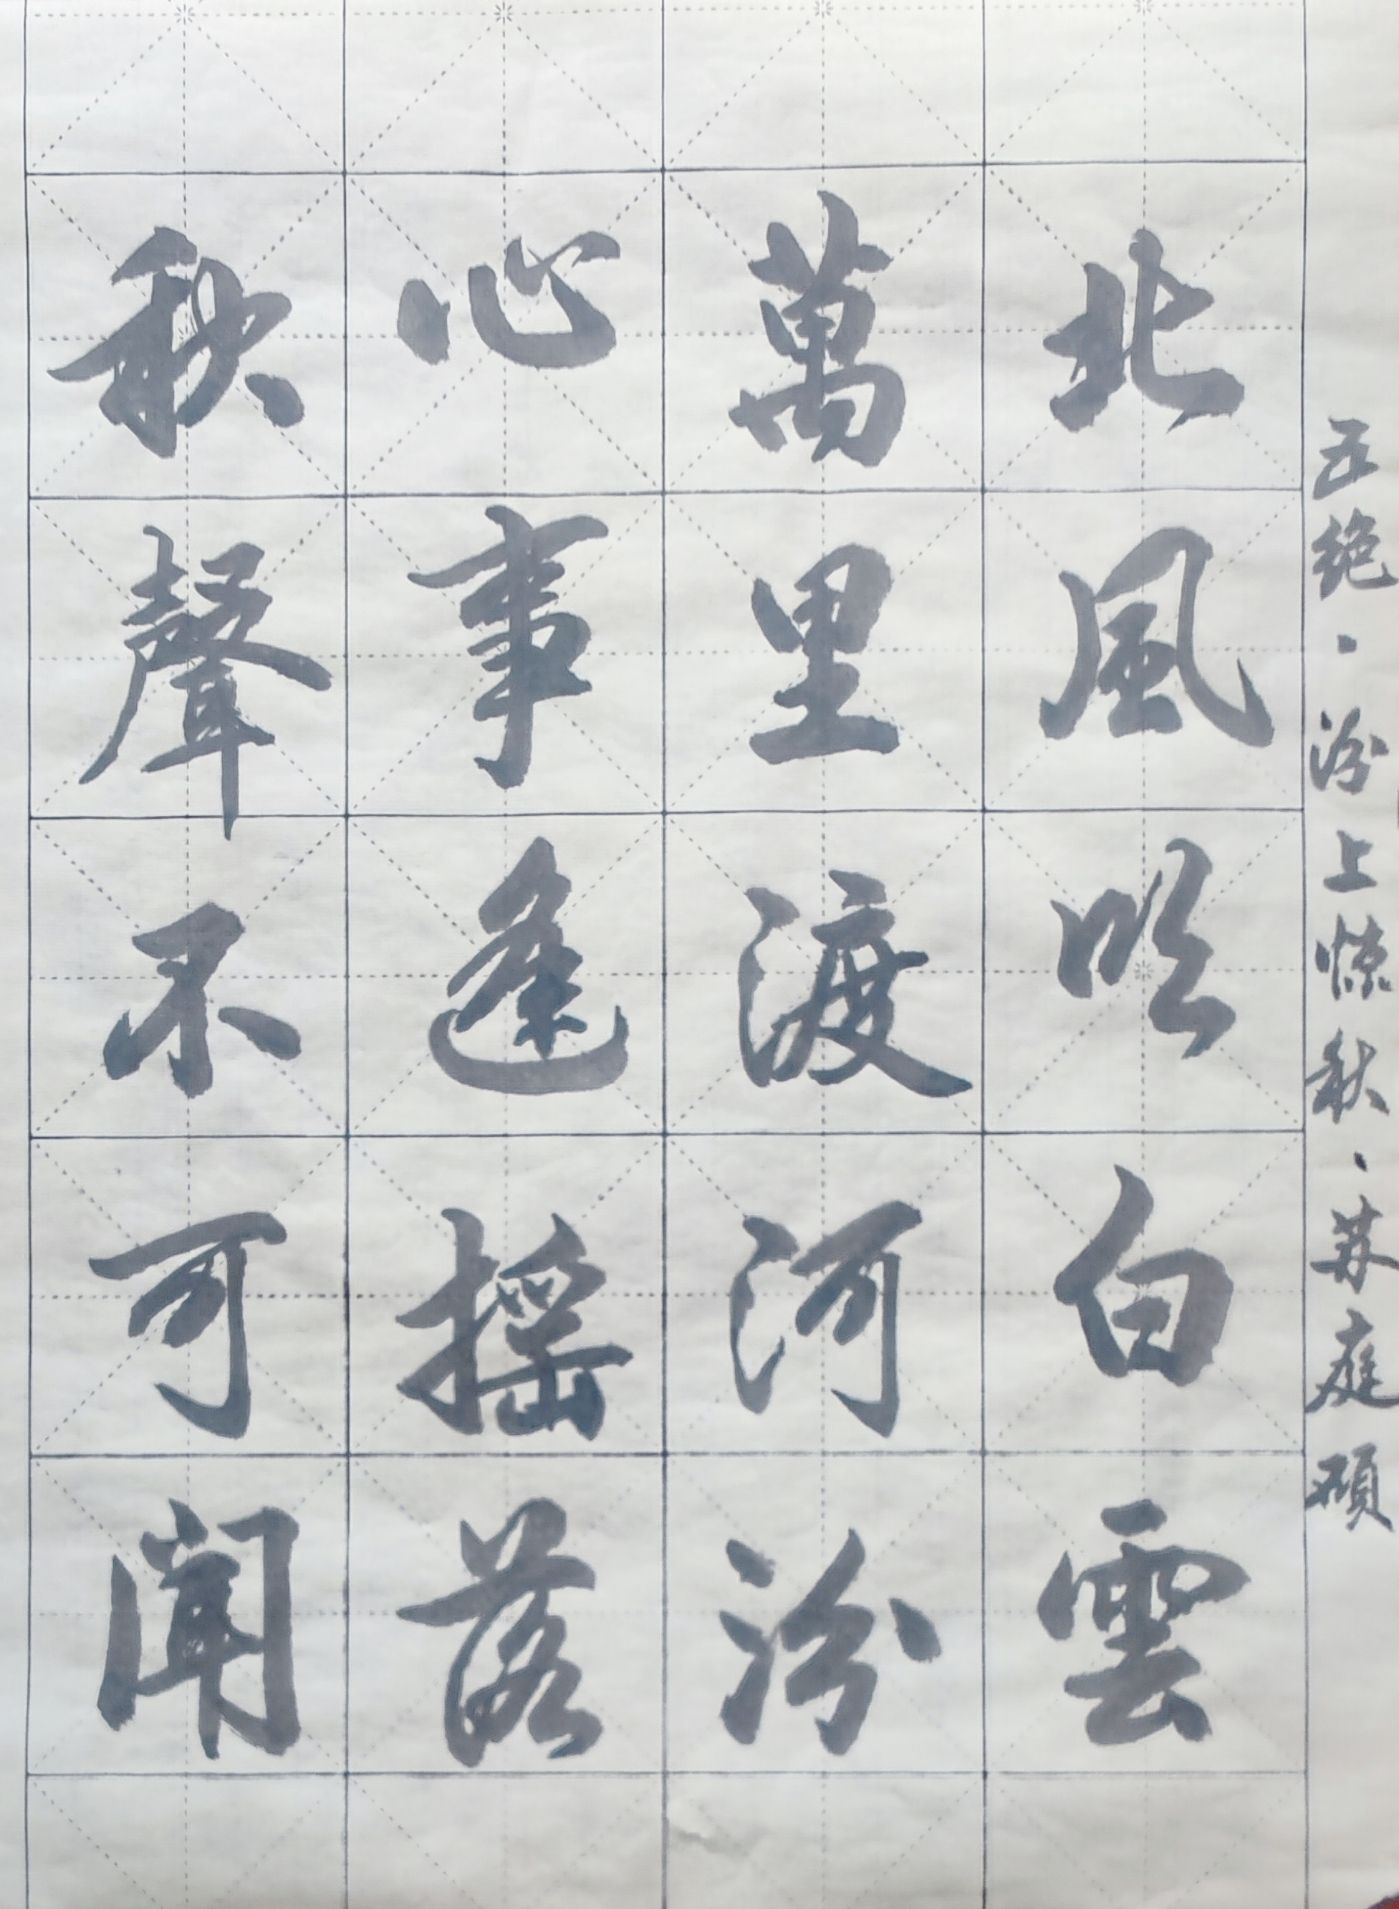 五绝·汾上惊秋·苏庭硕
北風吹白雲
萬里渡河汾
心事逢摇落
秋聲不可聞